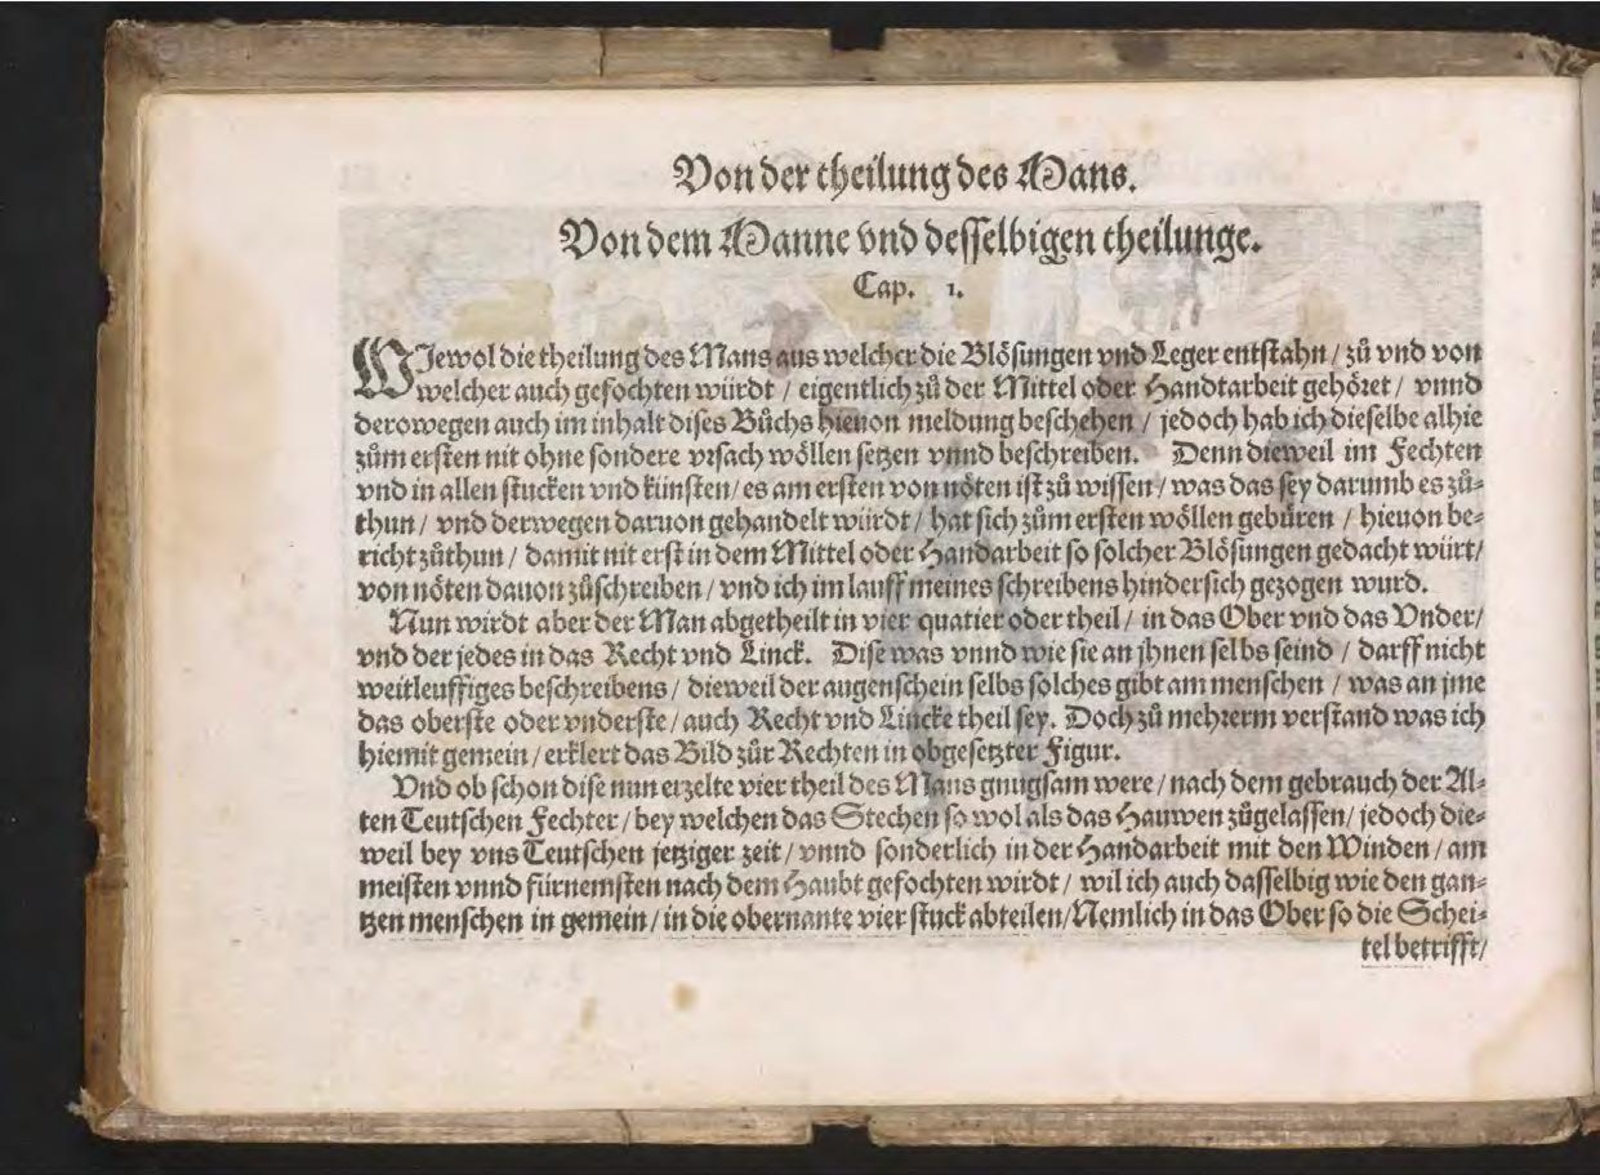 Von der theilung des Mans.
Von dem Manne vnd desselbigen theilunge.
Cap. 1.
WIewol die theilung des Mans aus welcher die Blösungen vnd Leger entstahn / zů vnd von
welcher auch gefochten würdt / eigentlich zů der Mittel oder Handtarbeit gehöret / vnnd
derowegen auch im inhalt dises Bůchs hieuon meldung beschehen / jedoch hab ich dieselbe alhie
zům ersten nit ohne sondere vrsach wöllen setzen vnnd beschreiben. Denn dieweil im Fechten
vnd in allen stucken vnd künsten / es am ersten von nöten ist zů wissen / was das sey darumb es zů-
thun / vnd derwegen daruon gehandelt würdt / hat sich zům ersten wöllen gebüren / hieuon be-
richt zůthun / damit nit erst in dem Mittel oder Handarbeit so solcher Blösungen gedacht würt /
von nöten dauon zůschreiben / vnd ich im lauff meines schreibens hindersich gezogen wurd.
Nun wirdt aber der Man abgetheilt in vier quatier oder theil / in das Ober vnd das Vnder /
vnd der jedes in das Recht vnd Linck. Dise was vnnd wie sie an jhnen selbs seind / darff nicht
weitleuffiges beschreibens / dieweil der augenschein selbs solches gibt am menschen / was an jme
das oberste oder vnderste / auch Recht vnd Lincke theil sey. Doch zů mehrerm verstand was ich
hiemit gemein / erklert das Bild zůr Rechten in obgesetzter Figur.
Vnd ob schon dise nun erzelte vier theil des Mans gnugsam were / nach dem gebrauch der Al-
ten Teutschen Fechter / bey welchen das Stechen so wol als das Hauwen zůgelassen / jedoch die-
weil bey vns Teutschen jetziger zeit / vnnd sonderlich in der Handarbeit mit den Winden / am
meisten vnnd fürnemsten nach dem Haubt gefochten wirdt / wil ich auch dasselbig wie den gan-
tzen menschen in gemein / in die obernante vier stuck abteilen / Nemlich in das Ober so die Schei-
tel betrifft /